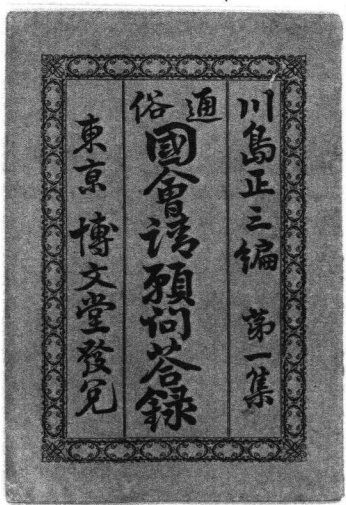 川島正三編 第一集
通俗
國會請願問荅録
東京 博文堂發兌